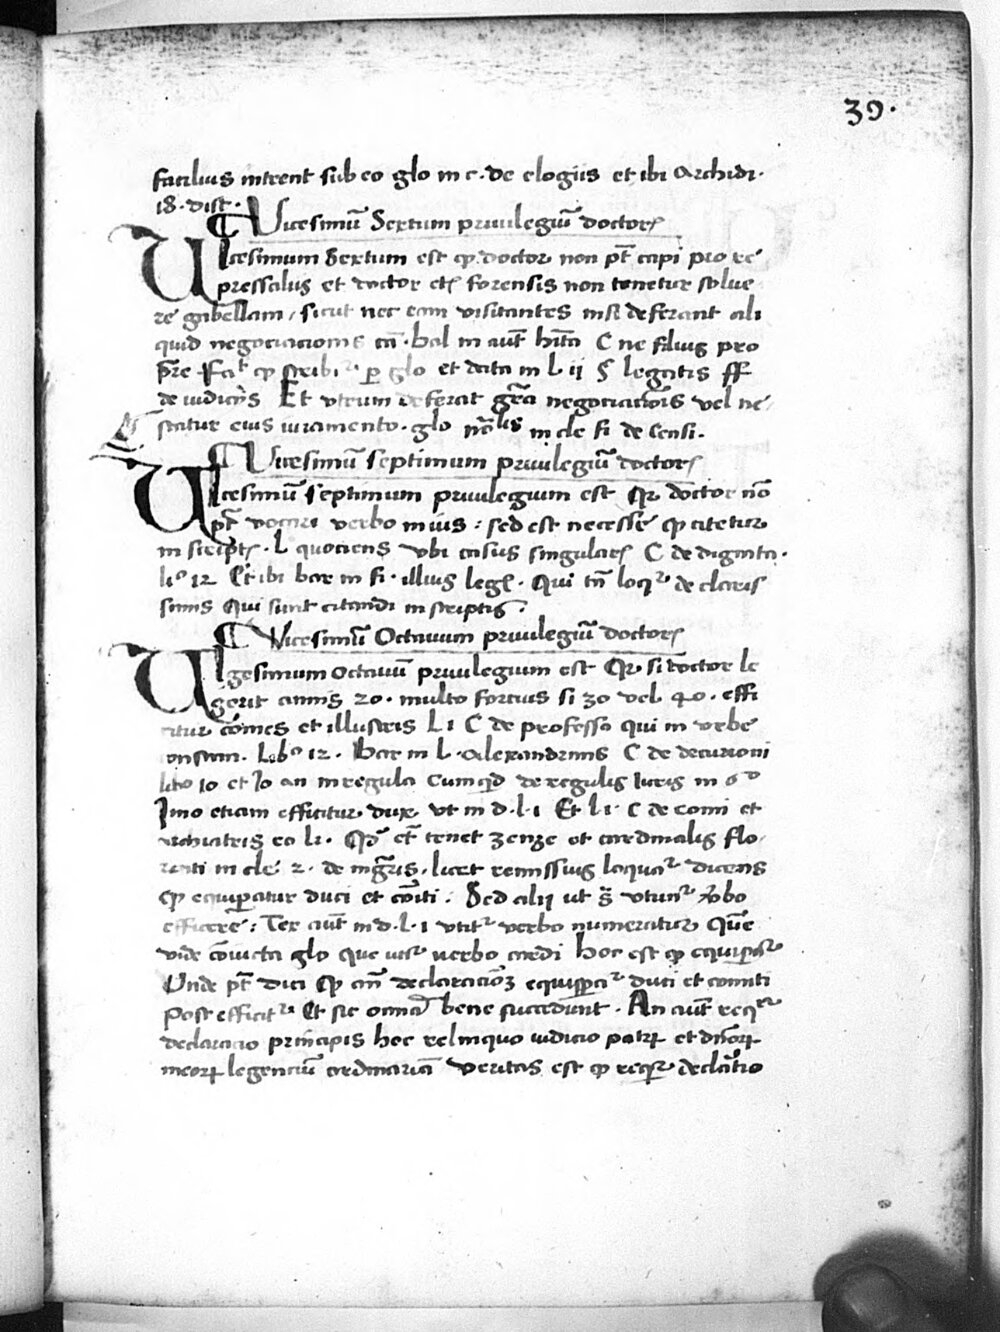 39.
facilius intrent sub eo glo in c. de elogiis et ibi Archidi.
18. dist.
Vicesimū Sextum priuilegiū doctoꝝ
Vicesimum Sextum est ꝙ doctor non pt̄ capi pro re
pressalus et doctor etꝫ forensis non tenetur solue
re gabellam, sicut nec eum visitantes nisi deferant ali
quid negociacionis cā. bal in aut̄ hīta C ne filius pro
pr̄e. Fcit ꝙ scribit ꝑ glo et dcta in L ii § legatis ff
de iudicijs Et vtrum deferat gr̄a negociacōnis vel ne
statur eius iuramento. glo in cle fi de censi.
Vicesimū septimum priuilegiū doctoꝝ
Vicesimū septimum priuilegium est Qꝛ doctor nō
pt̄ vocari verbo in ius: sed est necesse ꝙ citetur
in scriptꝭ. L quociens vbi casus singularꝭ C de dignita.
liº 12 Et ibi bar in fi. illius legꝭ. Qui tn̄ loqr de claris
simis Qui sunt citandi in scriptis.
Vicesimū Octauum priuilegiū doctoꝝ
Vigesimum octauū priuilegium est Qꝛ si doctor le
gerit annis 20. multo forcius si 30 vel 40. effi
citur comes et illustris L 1 C de professo qui in vrbe
constan. Libº 12. Bar in L. Alexandrinis C de decurioni
libº 10 et Io an in regula Cumqꝫd de regulis Iuris in 6º
Imo etiam efficitur dux vt in d. l. 1 Et l 1. C de comi et
archiatris eo li. Qd' et̄ tenet zenze et cardinalis flo
renti in cle 2. de mgr̄is. licet remissius loquat dicens
ꝙ equiꝑatur duci et cōiti: Sed alij ut s̄ vtunt vbo
efficere: Tex aut̄ in d. l. 1 vtit verbo numeratur Que
vide cōiucta glo que vtit verbo credi hoc est ꝙ equiꝑat
Vnde pt̄ dici ꝙ an̄ declaracionꝫ equiꝑat duci et comiti
Post efficit Et sic omnia bene succedunt. An aut̄ reqr
declaracio principis hec relinquo iudicio patrꝝ et dn̄oꝝ
meoꝝ legenciū ordinariā veritas est ꝙ reqr declātio